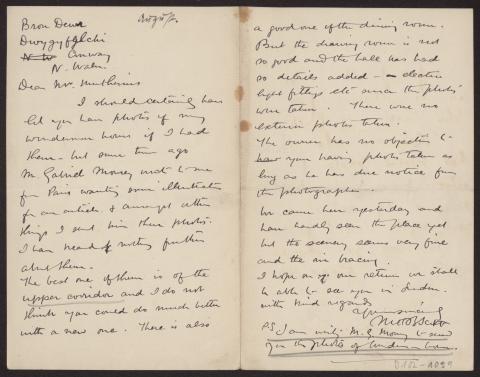 Bron Dewr
Dwygyfylchi
N W Conway
N. Wales
Dear Mr. Muthesius
I should certainly have
let you have photos of my
Windermere house if I had
them - but some time ago
M. Gabriel Mourey wrote to me
for Paris wanting some illustrations
for an article & amongst other
things I sent him these photos.
I have heard nothing further
about them.
The best one of them is of the
upper corridor and I do not
think you could do much better
with a new one. There is also
a good one of the dining room.
But the drawing room is not
so good and the hall has had
some details added - electric
light fittings etc since the photos
were taken. There were no
exterior photos taken.
The owner has no objection to
your having photos taken as
long as he has due notice from
the photographer.
We came here yesterday and
have hardly seen the place yet
but the scenery seems very fine
and the air bracing.
I hope on our return we shall
be able to see you in London.
With kind regards
Yours sincerely
M H Baillie Scott
PS I am writing M. G. Mourey to send
you the photos of Windermere house.